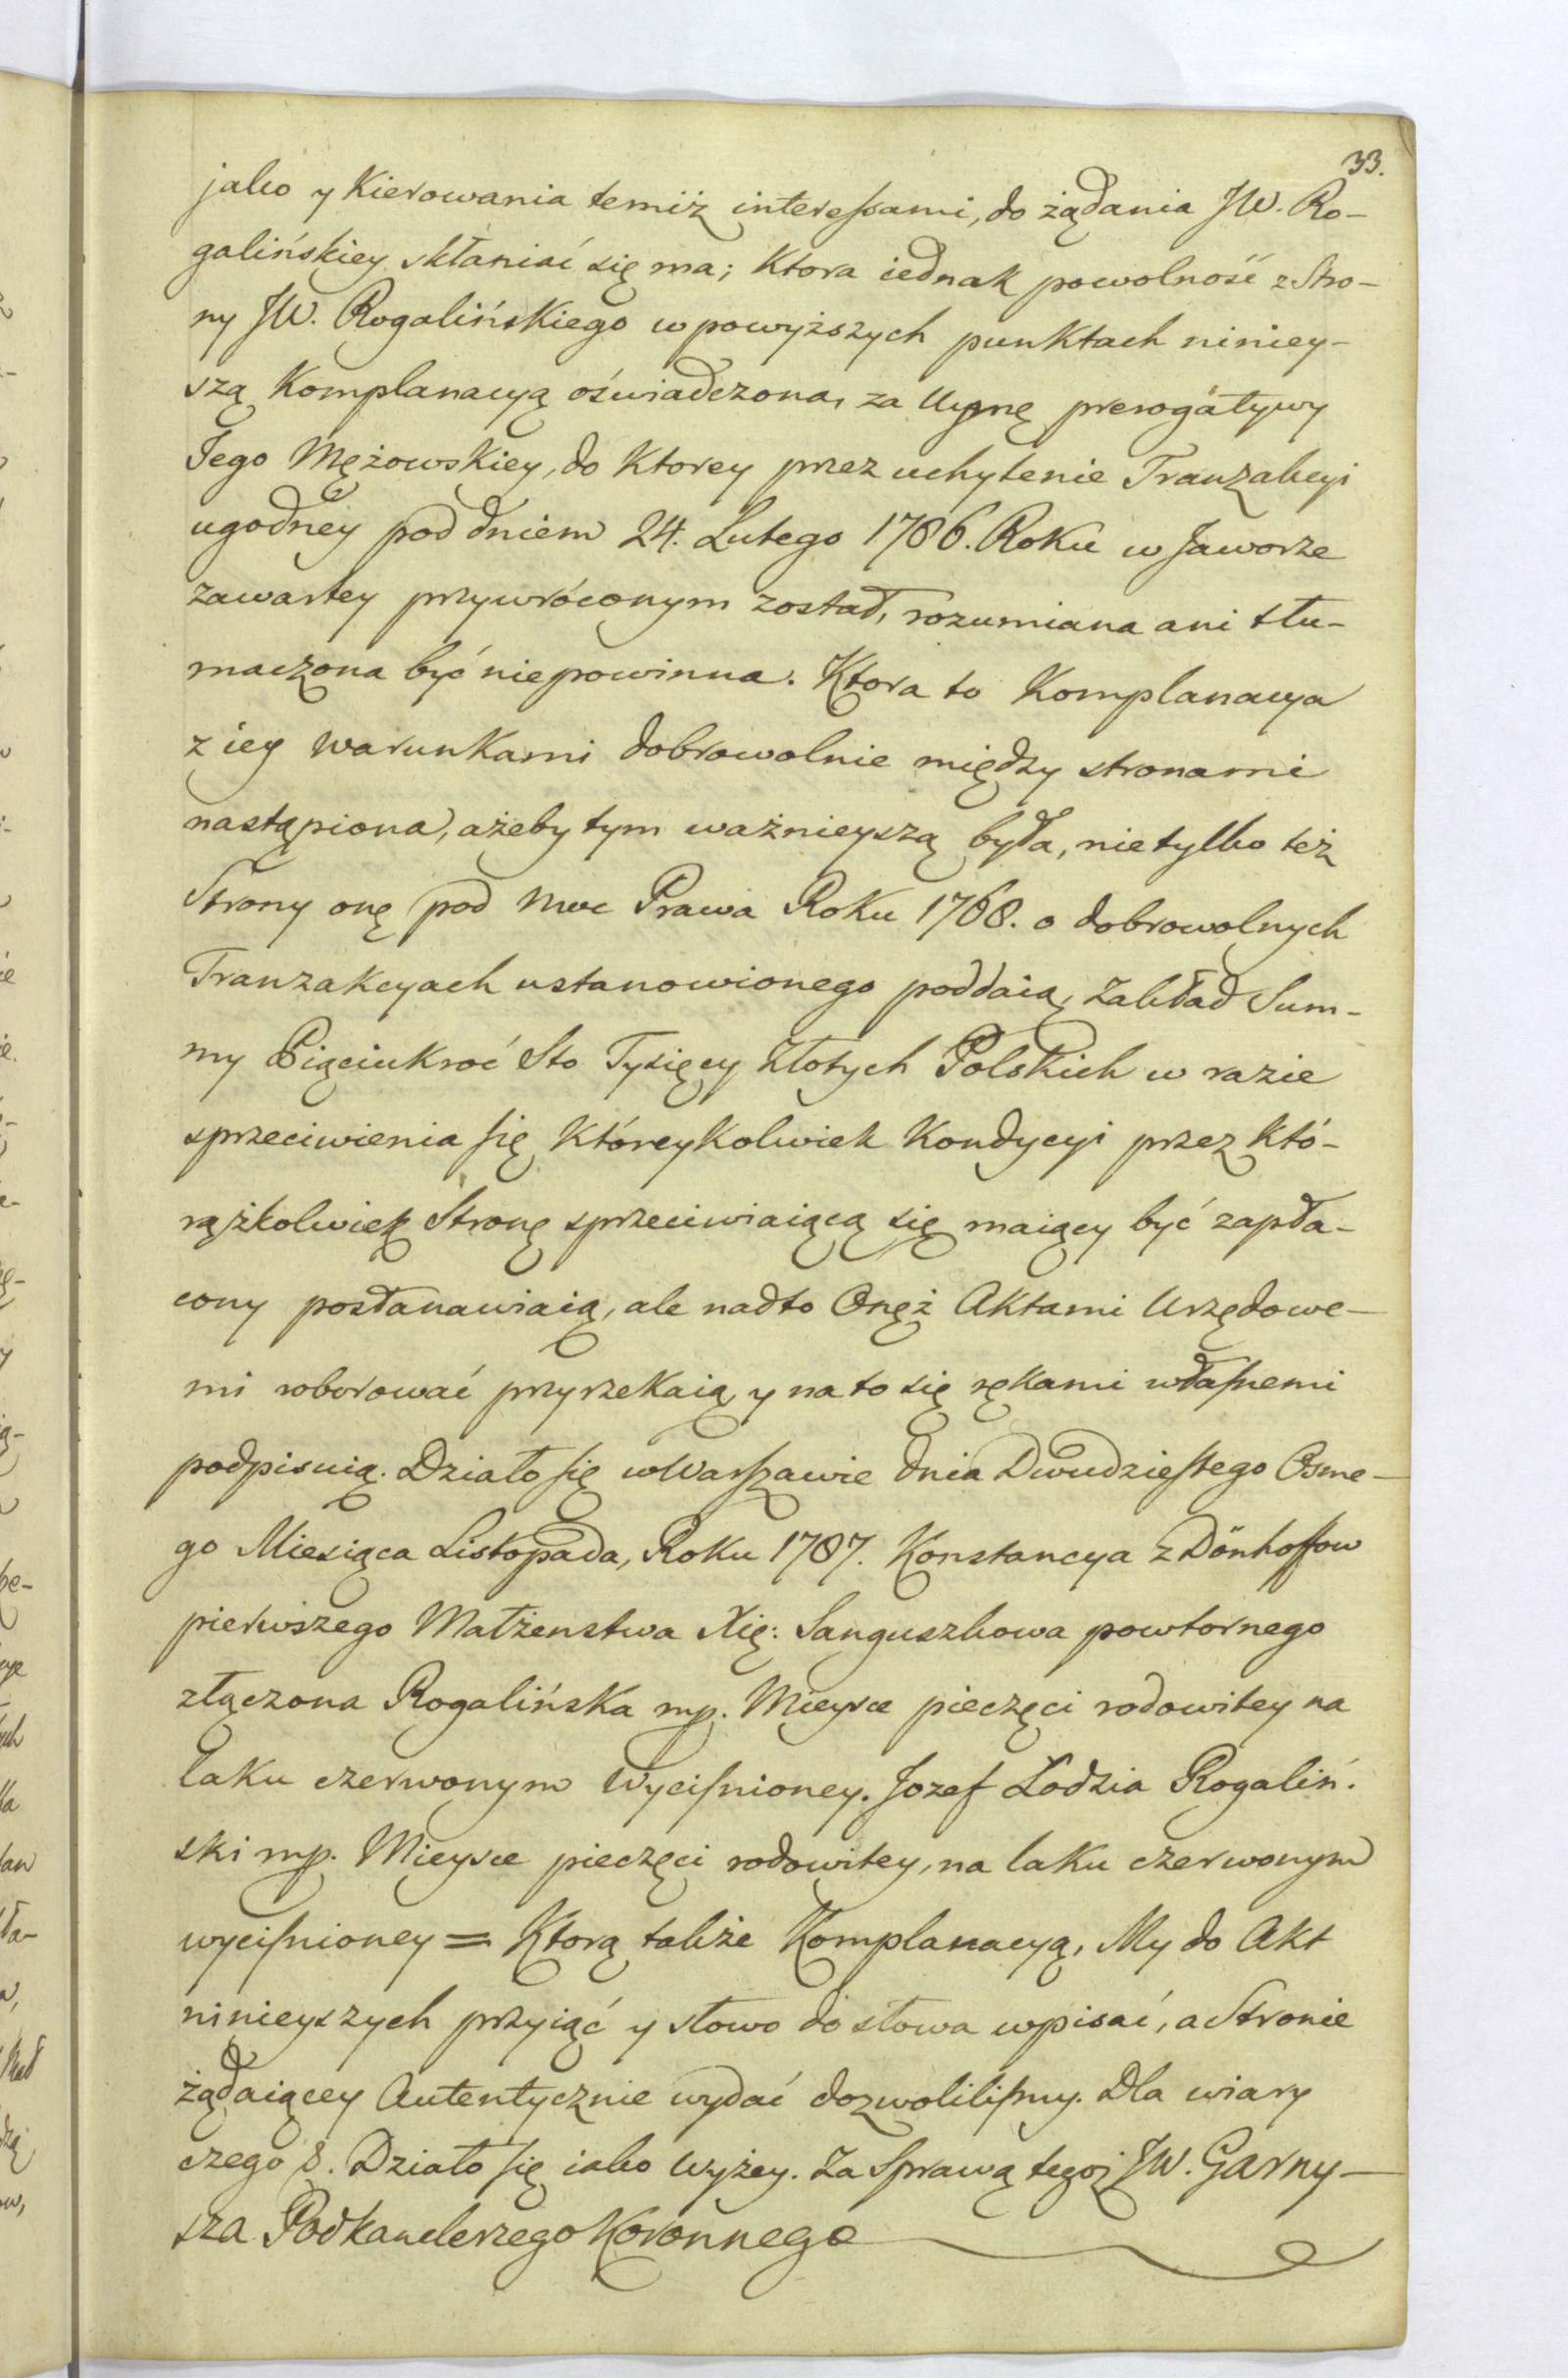 33.
jako y Kierowania temiż interessami, do żądania JW. Ro-
galińskiey skłaniać się ma; Ktora iednak powolność z Stro-
ny JW. Rogalińskiego w powyższych punktach niniey-
szą Komplanacyą oświadczona, za Uymę prerogatywy
Jego Mężowskiey, do Ktorey przez uchylenie Tranzakcyi
ugodney pod dniem 24. Lutego 1786. Roku w Jaworze
zawartey przywróconym został, rozumiana ani tłu-
maczona być nie powinna. Ktora to Komplanacya
z iey warunkami dobrowolnie między stronami
nastąpiona, ażeby tym ważnieyszą była, nie tylko też
Strony onę pod moc Prawa Roku 1768. o dobrowolnych
Tranzakcyach ustanowionego poddaią, Zakład Sum-
my Pięciukroć Sto Tysięcy Złotych Polskich w razie
sprzeciwienia się Któreykolwiek Kondycyi przez któ-
rążkolwiek Stronę sprzeciwiaiącą się maiący być zapła-
cony postanawiaią, ale nadto Onęż Aktami Urzędowe-
mi roborować przyrzekaią y na to się rękami własnemi
podpisuią. Działo się w Warszawie dnia Dwudziestego Osme-
go Miesiąca Listopada, Roku 1787. Konstancya z Dönhoffow
pierwszego Małżenstwa Xię: Sanguszkowa powtornego
złączona Rogalińska mp. Mieysce pieczęci rodowitey na
laku czerwonym wycisnioney. Jozef Łodzia Rogaliń.
ski mp. Mieysce pieczęci rodowitey, na laku czerwonym
wycisnioney = Ktorą także Komplanacyą, My do Akt
ninieyszych przyiąć y słowo do słowa wpisać, a Stronie
żądaiącey Autentycznie wydać dozwolilismy. Dla wiary
czego &. Działo się iako wyżey. Za Sprawą tegoż JW. Garny-
sza Podkanclerzego Koronnego